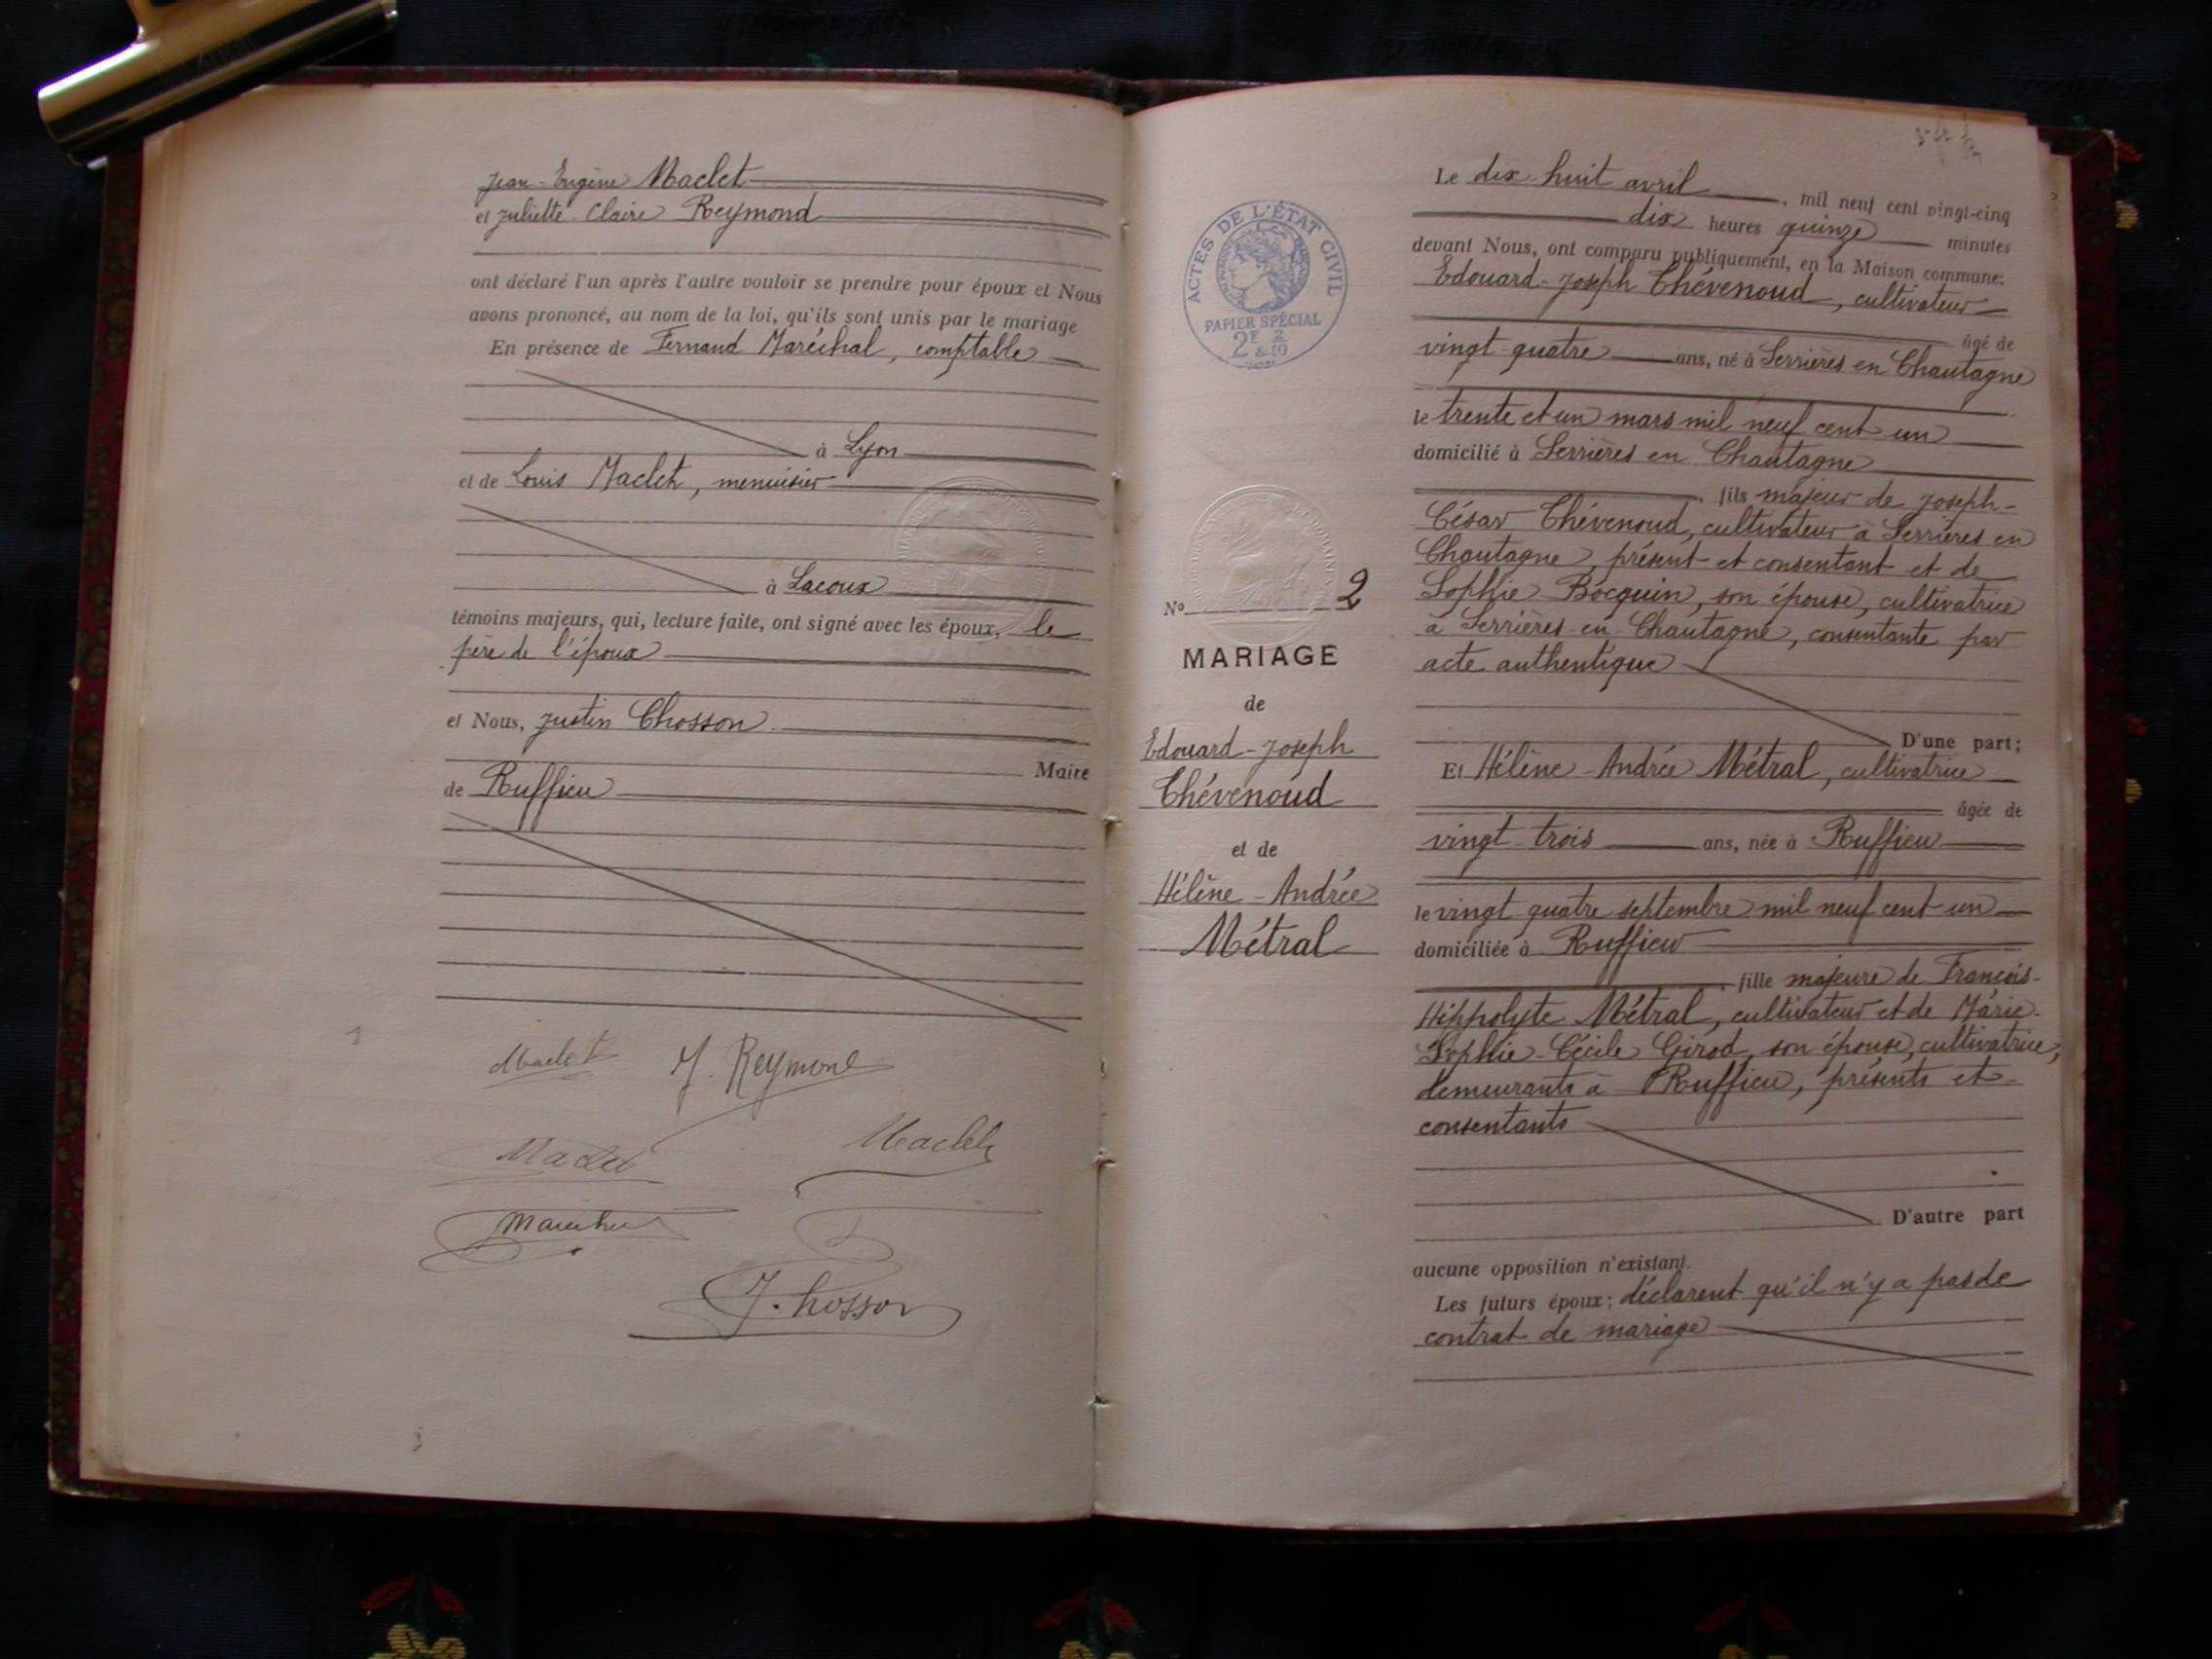 Jean-Eugène Maclet
et Juliette Claire Reymond
ont déclaré l'un après l'autre vouloir se prendre pour époux et Nous
avons prononcé, au nom de la loi, qu'ils sont unis par le mariage
En présence de Fernand Maréchal, comptable
à Lyon
et de Louis Maclet, menuisier
à Lacoux
témoins majeurs, qui, lecture faite, ont signé avec les époux, le
père de l'époux
et Nous, Justin Chosson
Maire
de Ruffieu
Maclet J. Reymond
Maclet Maclet
Maréchal
J. Chosson
ACTES DE L'ÉTAT CIVIL
PAPIER SPÉCIAL
2F & 2/10
N° 2
MARIAGE
de
Edouard-Joseph
Thévenoud
et de
Hélène-Andrée
Métral
Le dix huit avril, mil neuf cent vingt-cinq
dix heures quinze minutes
devant Nous, ont comparu publiquement, en la Maison commune:
Edouard-Joseph Thévenoud, cultivateur
âgé de
vingt-quatre ans, né à Serrières en Chautagne
le trente et un mars mil neuf cent un
domicilié à Serrières en Chautagne
, fils majeur de Joseph-
César Thévenoud, cultivateur à Serrières en
Chautagne, présent et consentant et de
Sophie Bocquin, son épouse, cultivatrice
à Serrières-en-Chautagne, consentante par
acte authentique
D'une part;
Et Hélène-Andrée Métral, cultivatrice
âgée de
vingt-trois ans, née à Ruffieu
le vingt quatre septembre mil neuf cent un
domiciliée à Ruffieu
, fille majeure de François-
Hippolyte Métral, cultivateur et de Marie-
Sophie-Cécile Girod, son épouse, cultivatrice,
demeurants à Ruffieu, présents et
consentants
D'autre part
aucune opposition n'existant.
Les futurs époux; déclarent qu'il n'y a pas de
contrat de mariage